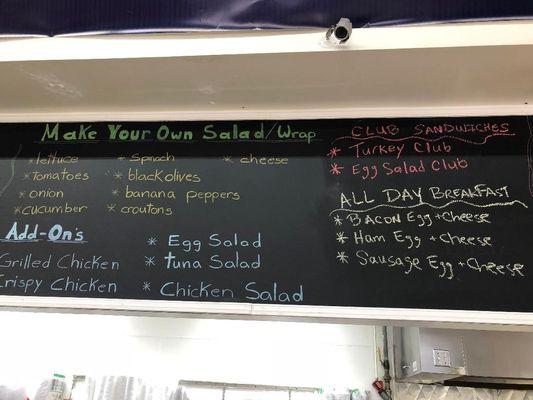 Make Your Own Salad/Wrap
*lettuce
*tomatoes
*onion
*cucumber
+ Spinach
*black olives
*banana peppers
*croutons
* cheese
Add-On's
Grilled Chicken
Crispy Chicken
* Egg Salad
* tuna Salad
* Chicken Salad
CLUB SANDWICHES
* Turkey Club
* Egg Salad Club
ALL DAY BREAKFAST
* BACON Egg + Cheese
* Ham Egg + Cheese
* Sausage Egg + Cheese